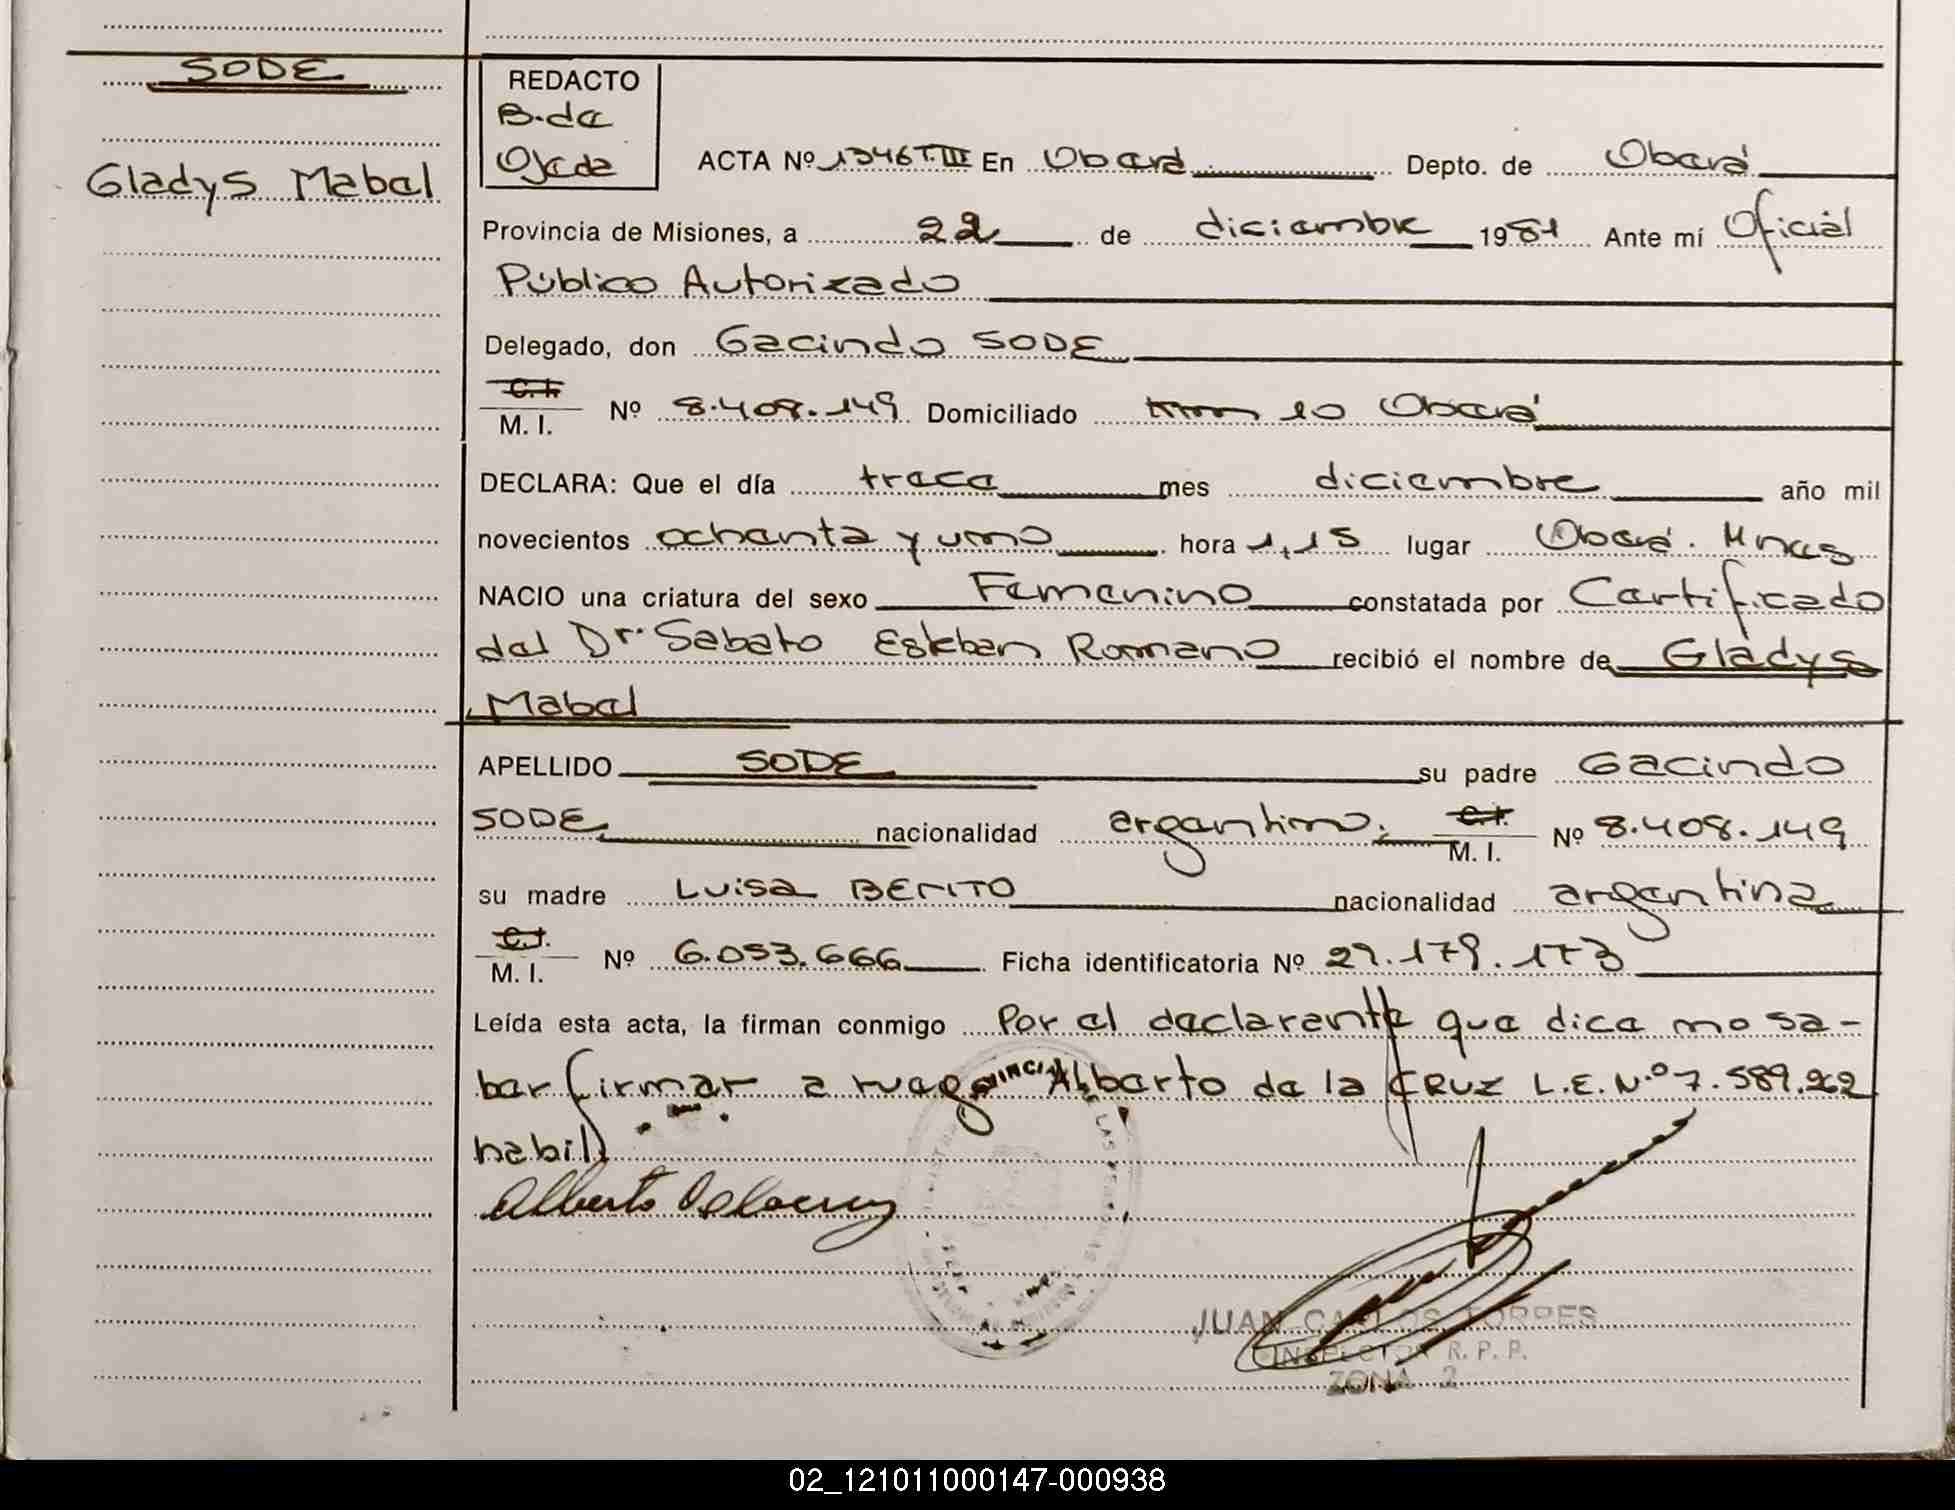 SODE
Gladys Mabel
REDACTO
B. de
Ojeda
ACTA Nº 1346 T.III En Oberá Depto. de Oberá
Provincia de Misiones, a 22 de diciembre 1981 Ante mí Oficial
Público Autorizado
Delegado, don Gacindo SODE
C.I.
M. I. Nº 8.408.149 Domiciliado km 10 Oberá
DECLARA: Que el día trece mes diciembre año mil
novecientos ochenta y uno hora 1,15 lugar Oberá. Mnes
NACIO una criatura del sexo Femenino constatada por Certificado
del Dr. Sabato Esteban Romano recibió el nombre de Gladys
Mabel
APELLIDO SODE su padre Gacindo
SODE nacionalidad argentino. C.I.
M. I. Nº 8.408.149
su madre Luisa BENITO nacionalidad argentina
C.I.
M. I. Nº 6.053.666 Ficha identificatoria Nº 29.179.173
Leída esta acta, la firman conmigo Por el declarante que dice no sa-
ber firmar a ruego Alberto de la CRUZ L.E. N.º 7.589.262
habil
Alberto Delacruz
JUAN CARLOS TORRES
INSPECTOR R. P. P.
ZONA 2
02_121011000147-000938